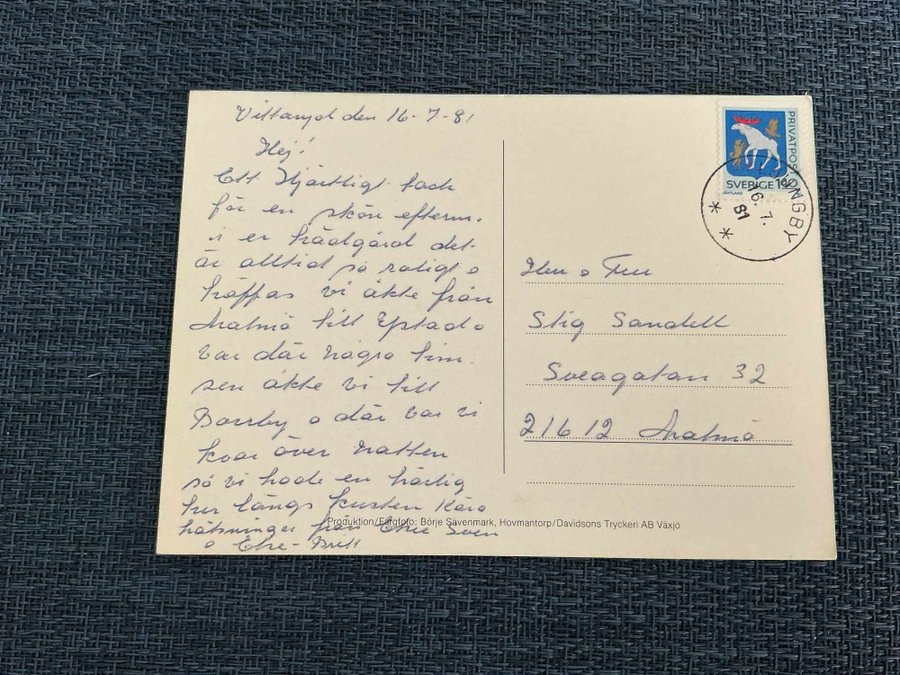 Vittaryd den 16-7-81
Hej!
Ett Hjärtligt tack
för en skön efterm.
i er trädgård det
är alltid så roligt o
träffas vi åkte från
Malmö till Ystad o
var där några tim.
sen åkte vi till
Borrby o där var vi
kvar över natten
så vi hade en härlig
tur längs kusten Kära
hälsningar från Sven
o Else-Britt
Herr o Fru
Stig Sandell
Sveagatan 32
216 12 Malmö
PRIVATPOST
SVERIGE
JÄMTLAND
LJUNGBY
16.7.
81
Produktion/Färgfoto: Börje Sävenmark, Hovmantorp/Davidsons Tryckeri AB Växjö